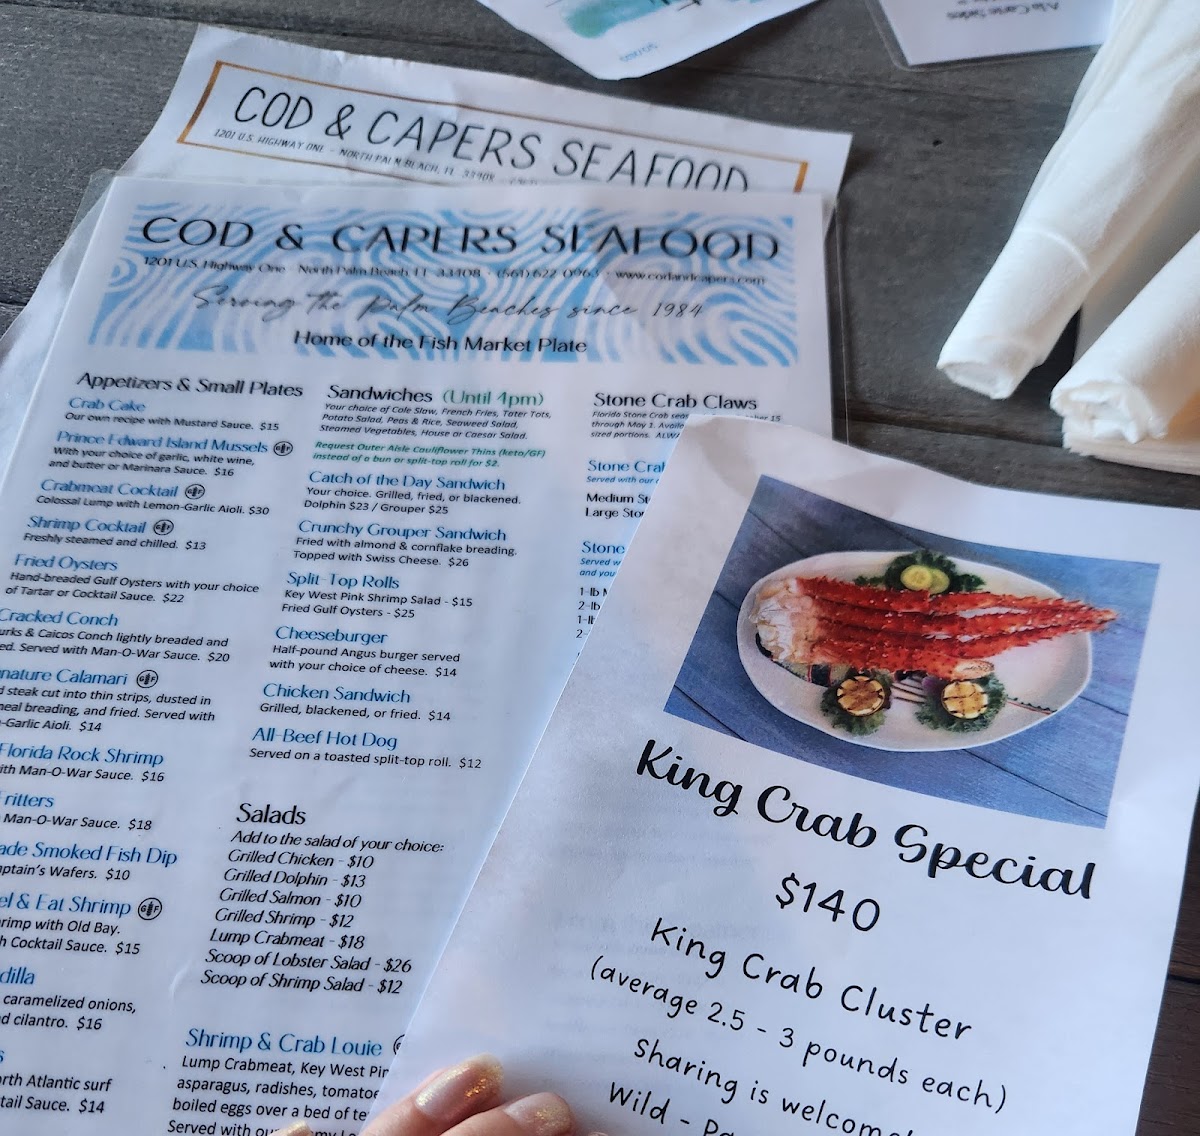 COD & CAPERS SEAFOOD
1201 U.S. HIGHWAY ONE - NORTH PALM BEACH, FL 33408
COD & CAPERS SEAFOOD
1201 U.S. Highway One · North Palm Beach FL 33408 · (561) 622-0963 · www.codandcapers.com
Serving the Palm Beaches since 1984
Home of the Fish Market Plate
Appetizers & Small Plates
Crab Cake
Our own recipe with Mustard Sauce. $15
Prince Edward Island Mussels GF
With your choice of garlic, white wine,
and butter or Marinara Sauce. $16
Crabmeat Cocktail GF
Colossal Lump with Lemon-Garlic Aioli. $30
Shrimp Cocktail GF
Freshly steamed and chilled. $13
Fried Oysters
Hand-breaded Gulf Oysters with your choice
of Tartar or Cocktail Sauce. $22
Cracked Conch
urks & Caicos Conch lightly breaded and
ed. Served with Man-O-War Sauce. $20
nature Calamari GF
d steak cut into thin strips, dusted in
neal breading, and fried. Served with
-Garlic Aioli. $14
Florida Rock Shrimp
ith Man-O-War Sauce. $16
ritters
Man-O-War Sauce. $18
ade Smoked Fish Dip
ptain's Wafers. $10
el & Eat Shrimp GF
rimp with Old Bay.
h Cocktail Sauce. $15
dilla
caramelized onions,
d cilantro. $16
s
rth Atlantic surf
tail Sauce. $14
Sandwiches (Until 4pm)
Your choice of Cole Slaw, French Fries, Tater Tots,
Potato Salad, Peas & Rice, Seaweed Salad,
Steamed Vegetables, House or Caesar Salad.
Request Outer Aisle Cauliflower Thins (keto/GF)
instead of a bun or split-top roll for $2.
Catch of the Day Sandwich
Your choice. Grilled, fried, or blackened.
Dolphin $23 / Grouper $25
Crunchy Grouper Sandwich
Fried with almond & cornflake breading.
Topped with Swiss Cheese. $26
Split-Top Rolls
Key West Pink Shrimp Salad - $15
Fried Gulf Oysters - $25
Cheeseburger
Half-pound Angus burger served
with your choice of cheese. $14
Chicken Sandwich
Grilled, blackened, or fried. $14
All-Beef Hot Dog
Served on a toasted split-top roll. $12
Salads
Add to the salad of your choice:
Grilled Chicken - $10
Grilled Dolphin - $13
Grilled Salmon - $10
Grilled Shrimp - $12
Lump Crabmeat - $18
Scoop of Lobster Salad - $26
Scoop of Shrimp Salad - $12
Shrimp & Crab Louie
Lump Crabmeat, Key West Pin
asparagus, radishes, tomatoe
boiled eggs over a bed of te
Served with ou
Stone Crab Claws
Florida Stone Crab seas 15
through May 1. Availa
sized portions. ALW
Stone Cral
Served with our
Medium St
Large Sto
Stone
Served w
and you
1-lb M
2-lb
1-lb
2-
King Crab Special
$140
King Crab Cluster
(average 2.5 - 3 pounds each)
Sharing is welcome
Wild - Pa